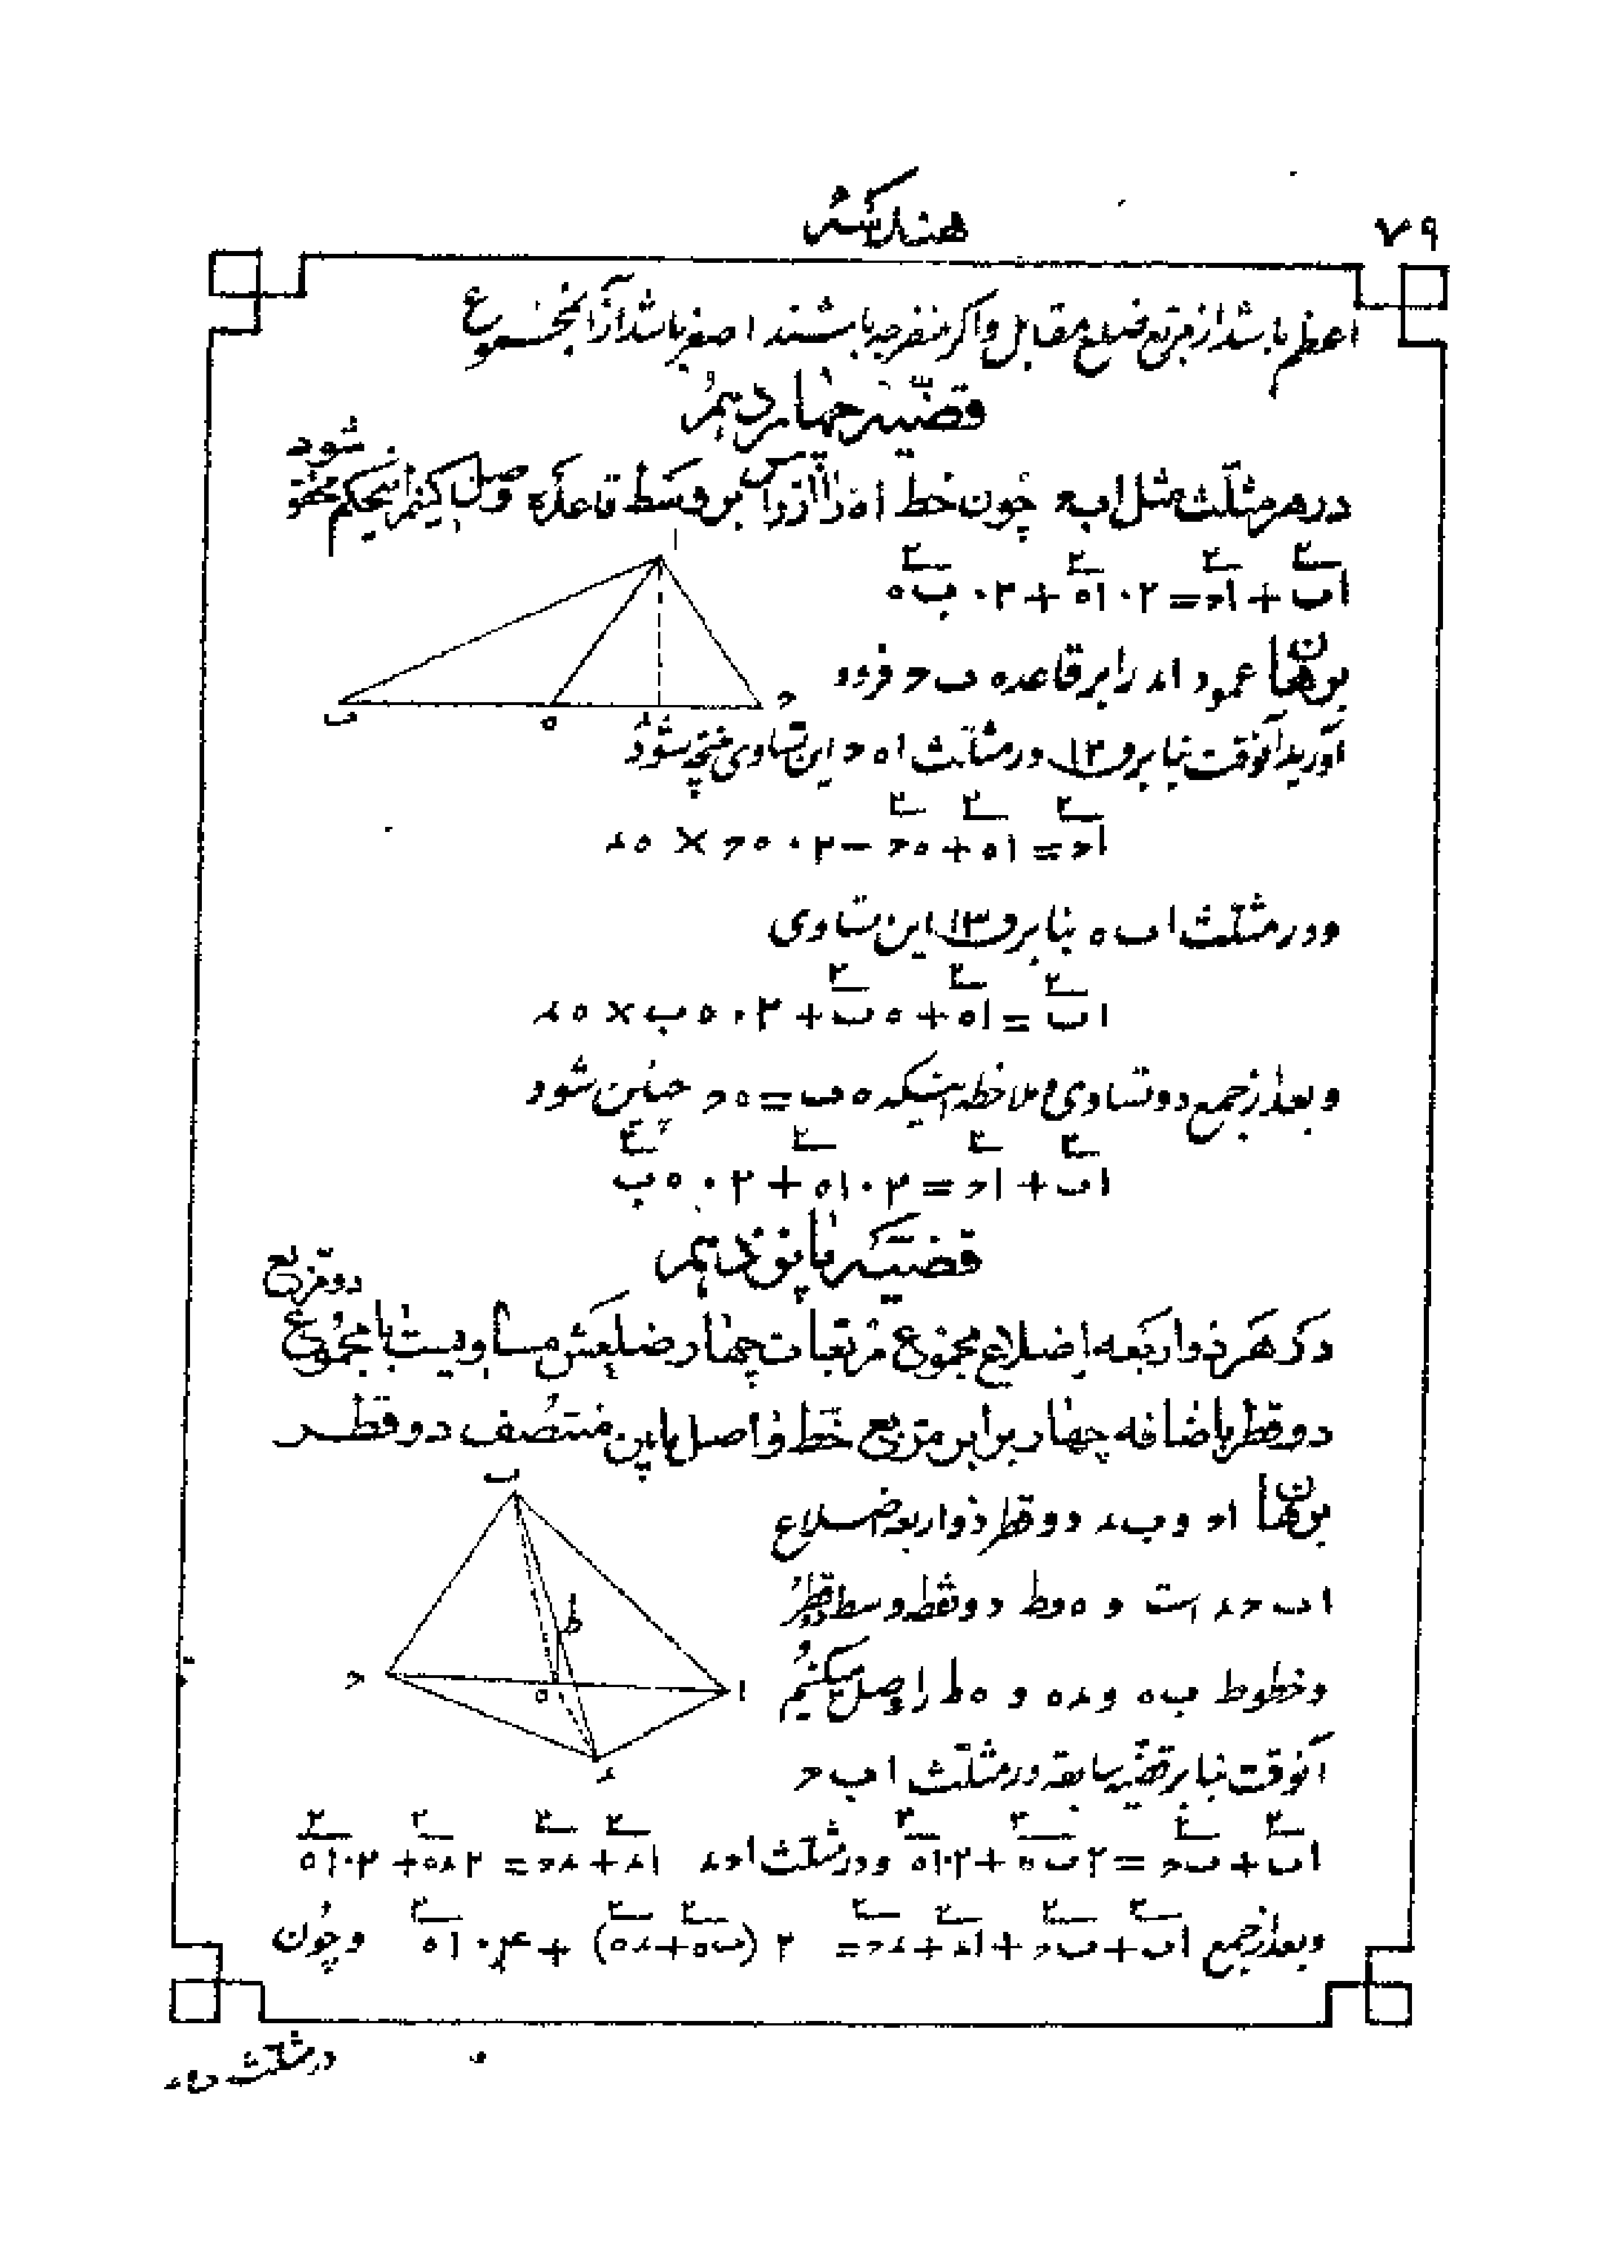 ۷۹
هندسه
اعظم باشد از مربع ضلع مقابل و اکر منفرجه باشند اصغر باشد از آنمجموع
قضیّه چهاردیم
شود
در هر مثلّث مثل اب‍ح چون خطّ اه را از راس بر وسط قاعده وصل کنیم اینحکم محقق
اب٢ + اح٢ = ٢٠اه٢ + ٢٠ب‍ه٢
برهان عمود اد را بر قاعده ب‍ح فرود
آورید آنوقت بنابر ق ١٢ در مثلّث اه‍ح این تساوی منتج شود
اح٢ = اه٢ + ه‍ح٢ − ٢٠ه‍ح × ه‍د
و در مثلّث اب‍ه بنابر ق ١٣ این تساوی
اب٢ = اه٢ + ه‍ب٢ + ٢٠ه‍ب × ه‍د
و بعد از جمع دو تساوی و ملاحظه اینکه ه‍ب = ه‍ح چنین شود
اب٢ + اح٢ = ٢٠اه٢ + ٢٠ه‍ب٢
قضیّه پانزدیم
دو مربع
در هر ذو اربعه اضلاع مجموع مربعات چهار ضلعش مساویست با مجموع
دو قطر باضافه چهار برابر مربع خطّ واصل مابین منتصف دو قطر
برهان اح و ب‍د دو قطر ذو اربعه اضلاع
اب‍ح‍د است و ه و ط دو نقطه وسط دو قطر
و خطوط ب‍ه و د‍ه و ه‍ط را وصل میکنیم
آنوقت بنابر قضیّه سابقه در مثلّث اب‍ح
اب٢ + ب‍ح٢ = ٢ب‍ه٢ + ٢٠اه٢ و در مثلّث اح‍د اد٢ + د‍ح٢ = ٢د‍ه٢ + ٢٠اه٢
و بعد از جمع اب٢ + ب‍ح٢ + اد٢ + د‍ح٢ = ٢ (ب‍ه٢ + د‍ه٢) + ۴٠اه٢ و چون
در مثلّث ب‍ه‍د
ا
ب
ه
د
ح
ب
ط
ح
ه
ا
د